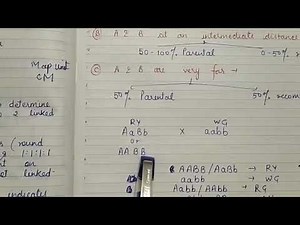 (B) A & B at an intermediate distance
50-100% Parental 0-50%
Map unit
CM
(C) A & B are very far →
50% Parental 50% recom
determine
2 linked
RY WG
AaBb x aabb
or
AABB
(round
1:1:1:1
t on
et linked
AABB/AaBb → RY
aabb → WG
Aabb/AAbb → RG
indicates